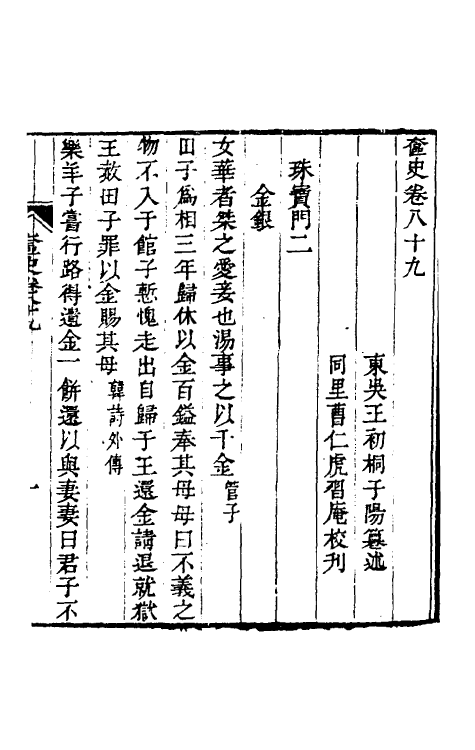 奩史卷八十九
東吳王初桐子陽篡述
同里曹仁虎習庵校刊
珠寶門二
金銀
女華者桀之愛妾也湯事之以千金管子
田子爲相三年歸休以金百鎰奉其母母曰不義之
物不入于館子慙愧走出自歸于王還金請退就獄
王赦田子罪以金賜其母韓詩外傳
樂羊子嘗行路得遺金一餅還以與妻妻曰君子不
奩史卷八十九
一